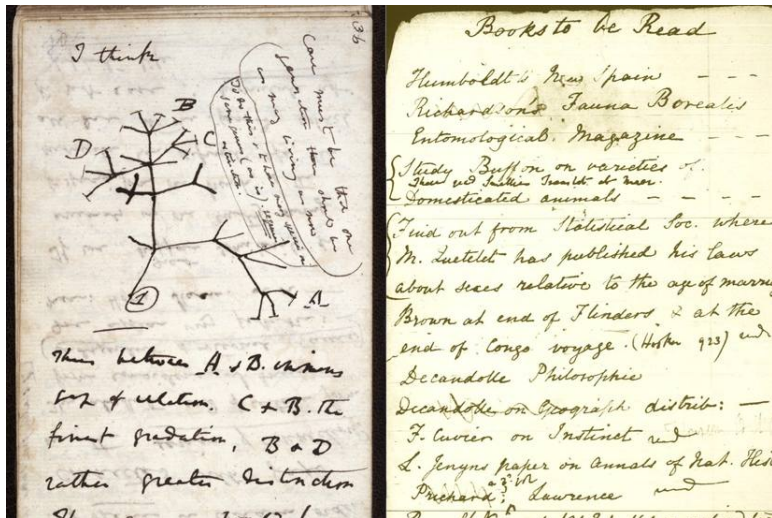 36
I think
Case must be that one
generation then should be
as many living as now
To do this & to have many species in
same genus (as is) requires
extinction
B
C
D
A
1
Thus between A & B. immens
gap of relation. C & B. the
finest gradation, B & D
rather greater distinction
Books to be Read
Humboldt's New Spain – – –
Richardson's Fauna Borealis
Entomological Magazine – – –
Study Buffon on varieties of
Domesticated animals – – – –
Find out from Statistical Soc. where
M. Quetelet has published his laws
about sexes relative to the age of marria
Brown at end of Flinders & at the
end of Congo voyage. (Hooker 923) read
Decandolle Philosophie
Decandolle on Geograph distrib: —
F. Cuvier on Instinct read
L. Jenyns paper on Annals of Nat. Hist
Prichard; Lawrence read